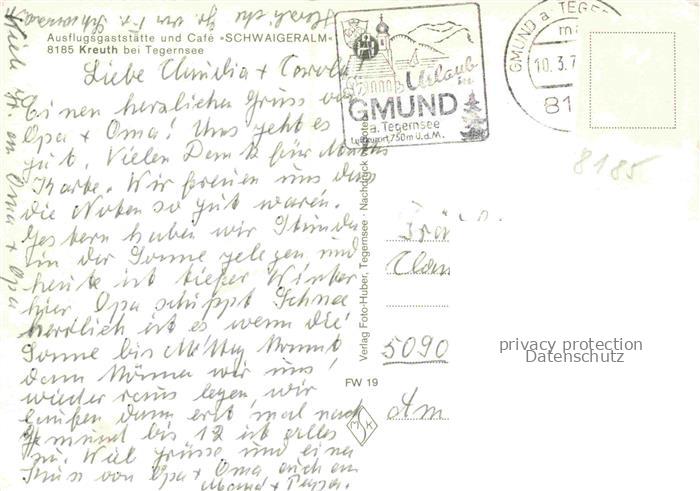 Ausflugsgaststätte und Café »SCHWAIGERALM«
8185 Kreuth bei Tegernsee
Liebe Claudia +
Einen herzlichen Gruss von
Opa + Oma! Uns geht es
gut. Vielen Dank für
Karte. Wir freuen uns das
die Noten so gut waren.
Gestern haben wir 1 Stunde
in der Sonne gelegen und
heute ist tiefer Winter
hier Opa schippt Schnee
herrlich ist es wenn die
Sonne bis Mittag kommt
dann können wir uns
wieder raus legen, wir
laufen dann erst mal nach
Gmund bis 12 ist alles
zu. Viel Grüsse und eine
Kuss von Opa + Oma auch an
Mama + Papa.
Viele Gr. an Oma + Opa
Urlaub
in
GMUND
a. Tegernsee
Luftkurort, 750 m ü.d.M.
GMUND a. TEGE
10.3.7
81
8185
Verlag Foto-Huber, Tegernsee · Nachdruck verboten
FW 19
M S K
5090
Am
privacy protection
Datenschutz